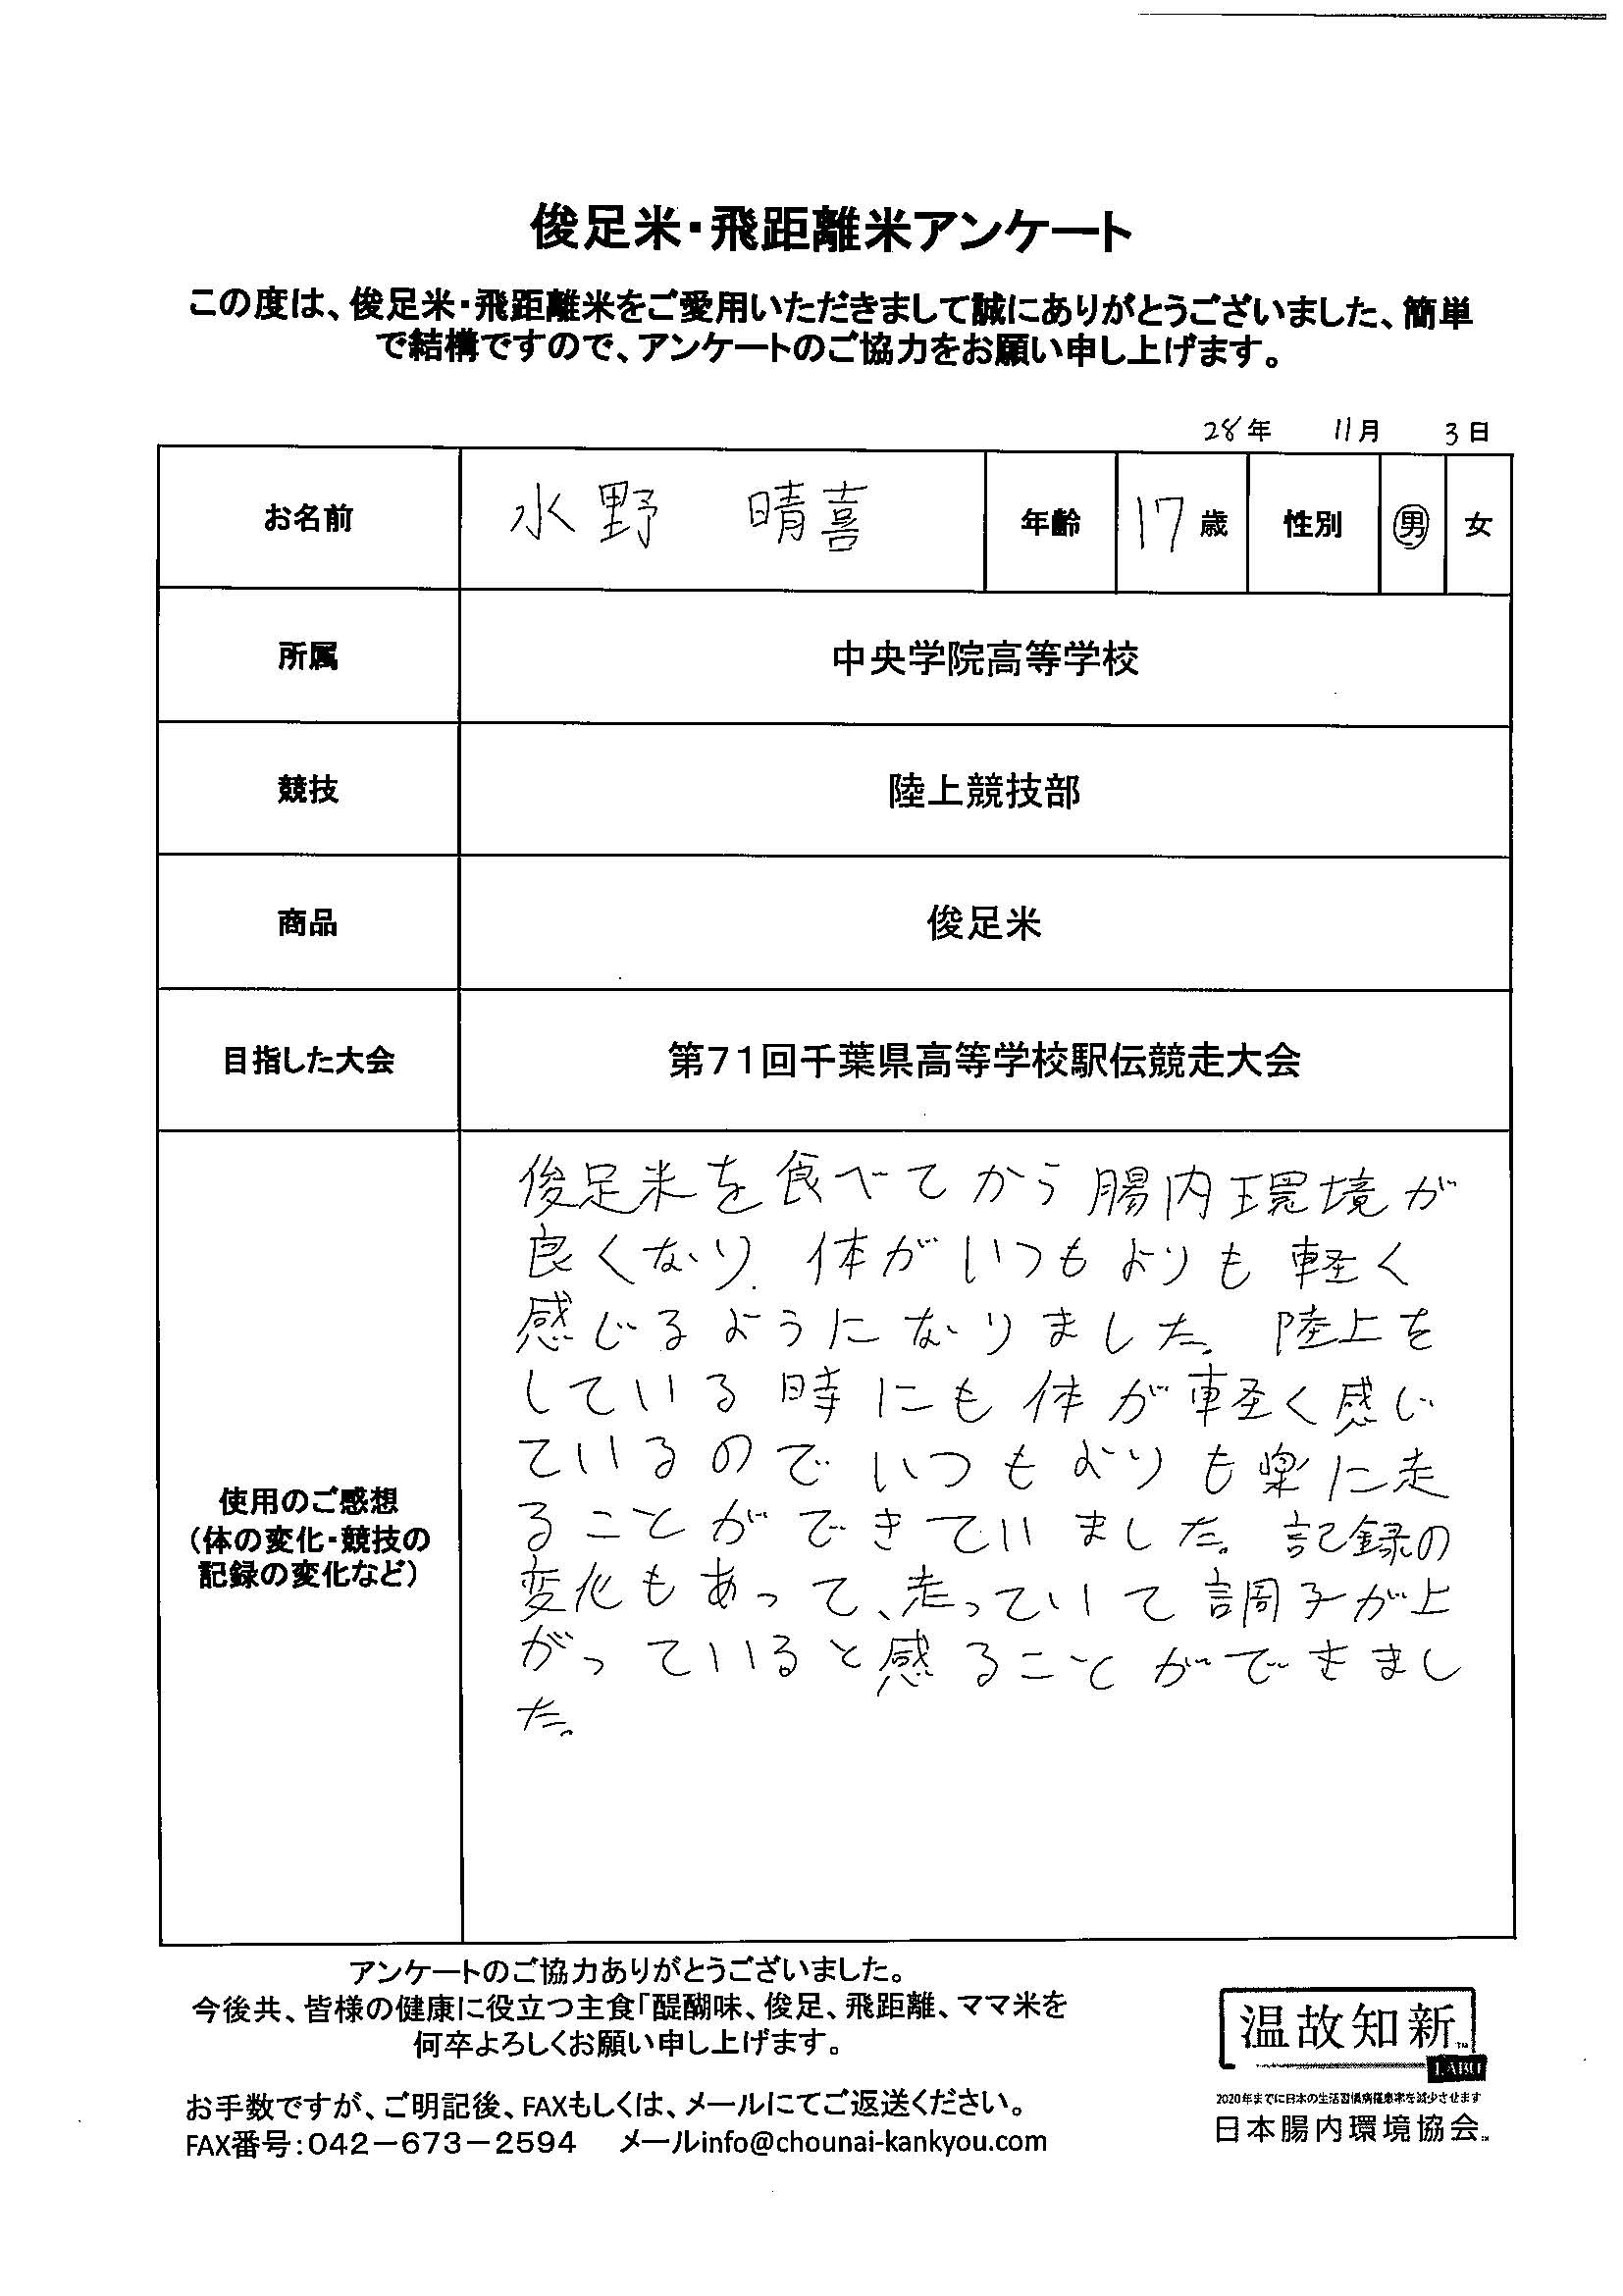 俊足米・飛距離米アンケート
この度は、俊足米・飛距離米をご愛用いただきまして誠にありがとうございました、簡単
で結構ですので、アンケートのご協力をお願い申し上げます。
28年 11月 3日
お名前 水野 晴喜 年齢 17歳 性別 男 女
所属 中央学院高等学校
競技 陸上競技部
商品 俊足米
目指した大会 第71回千葉県高等学校駅伝競走大会
使用のご感想
(体の変化・競技の
記録の変化など)
俊足米を食べてから腸内環境が
良くなり、体がいつもよりも軽く
感じるようになりました。陸上を
している時にも体が軽く感じ
ているのでいつもよりも楽に走
ることができていました。記録の
変化もあって、走っていて調子が上
がっていると感ることができまし
た。
アンケートのご協力ありがとうございました。
今後共、皆様の健康に役立つ主食「醍醐味、俊足、飛距離、ママ米を
何卒よろしくお願い申し上げます。
お手数ですが、ご明記後、FAXもしくは、メールにてご返送ください。
FAX番号:042-673-2594 メールinfo@chounai-kankyou.com
温故知新™
LABO
2020年までに日本の生活習慣病罹患率を減少させます
日本腸内環境協会